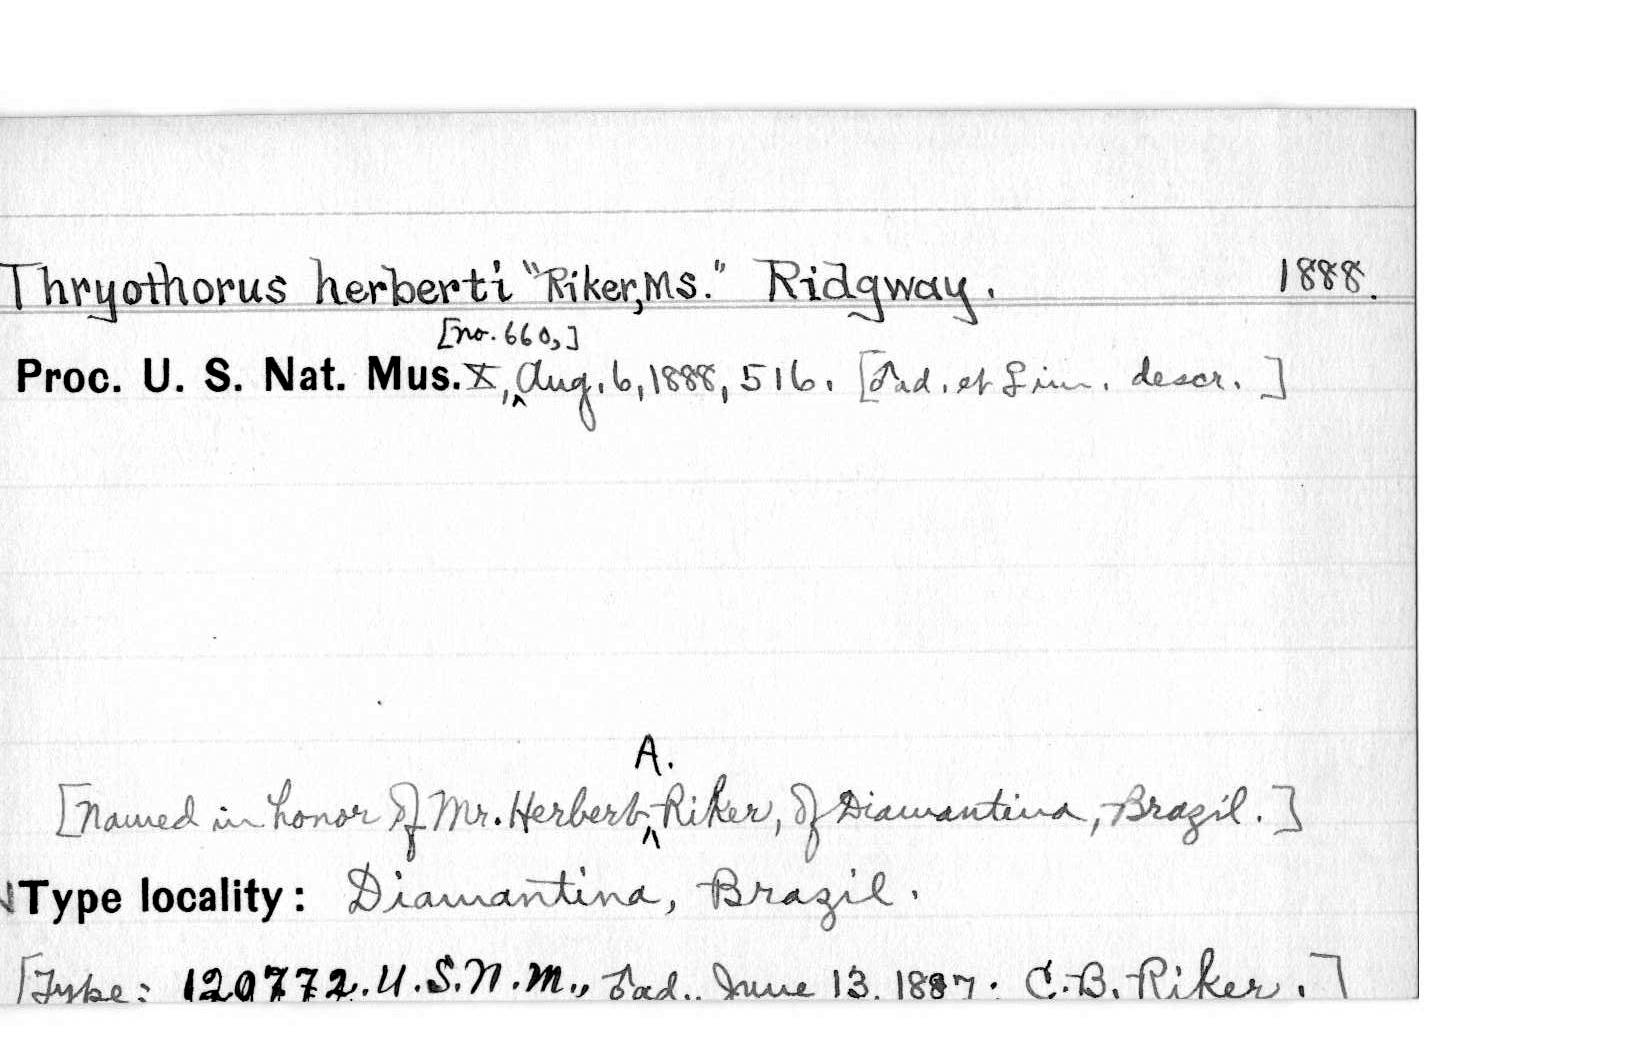 Thryothorus herberti "Riker, Ms." Ridgway. 1888.
[no. 660,]
Proc. U. S. Nat. Mus. X, Aug. 6, 1888, 516. [♂ad. et ♀im. descr.]
A.
[Named in honor of Mr. Herbert Riker, of Diamantina, Brazil.]
Type locality: Diamantina, Brazil.
[Type: 120772. U.S.N.M., ♂ad.. June 13. 1887. C.B. Riker.]